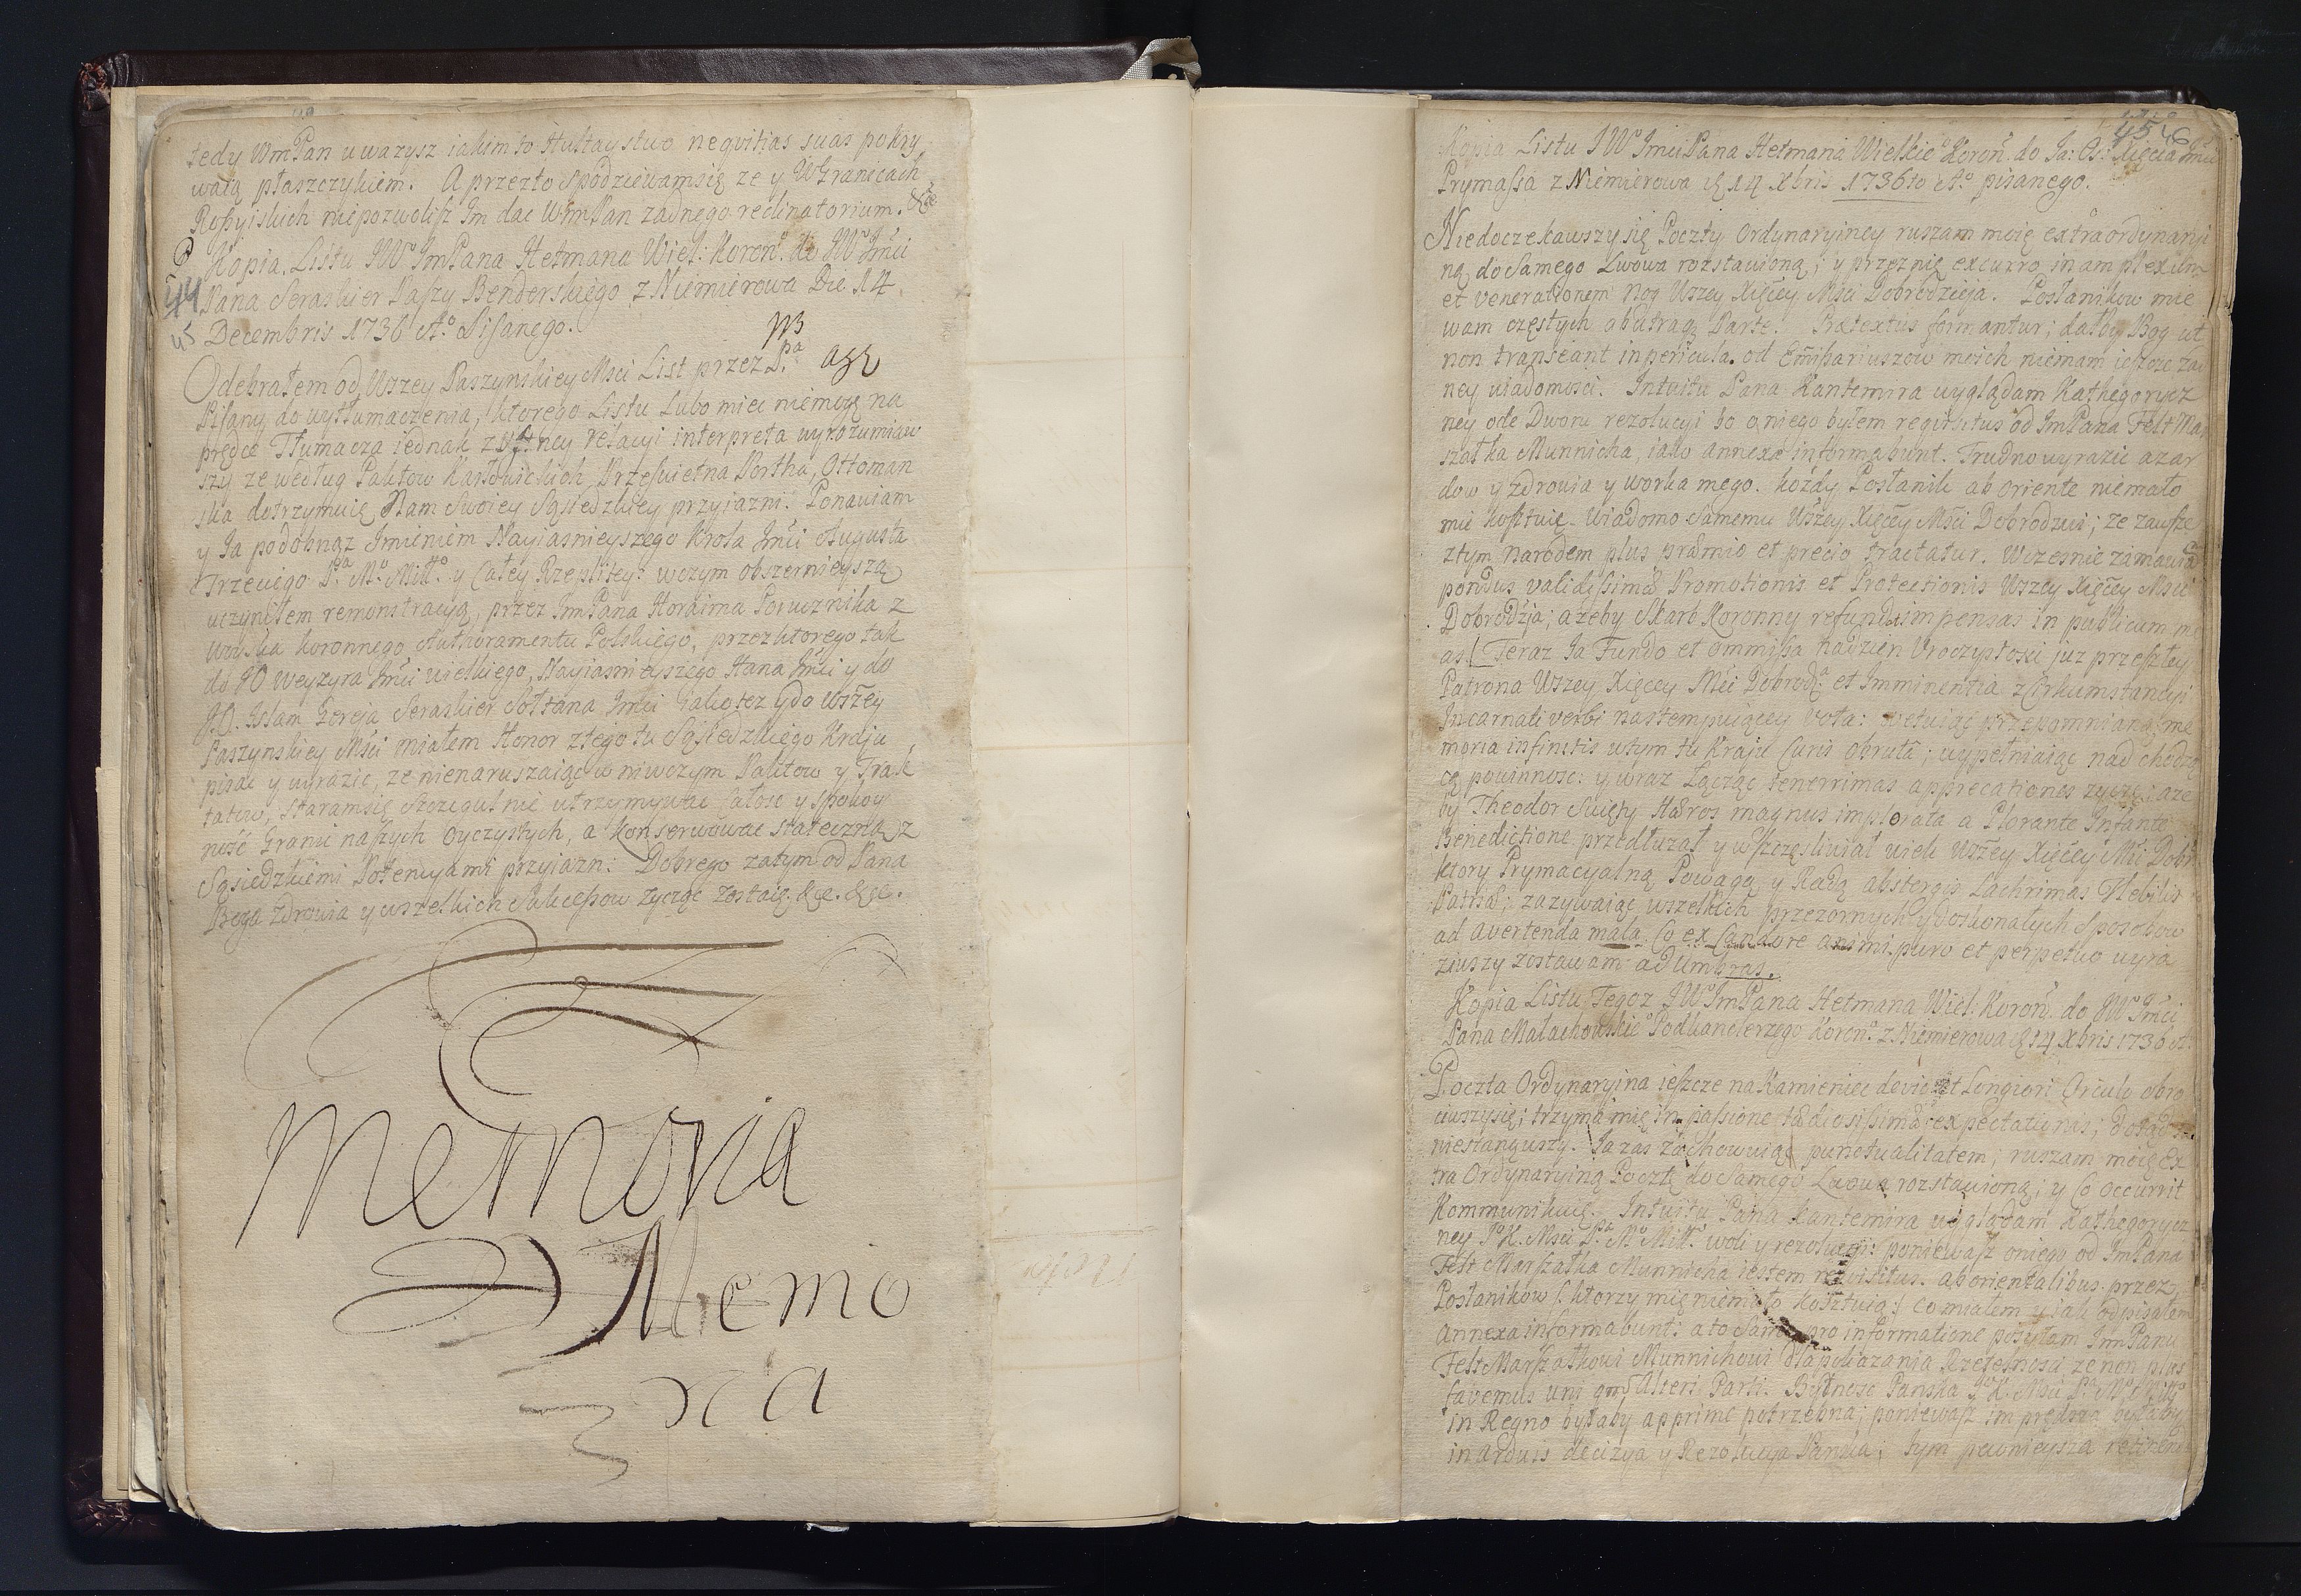 tedy WmPan uwarysz iakim to Hultaystwo neqvitias suas pokry
waią płaszczykiem. A przezto spodziewamsię ze y W Granicach
Roſsyiskich niepozwolisz Im dac WmPan zadnego reclinatorium. &c
Kopia Listu JWo ImPana Hetmana Wiel: Koronno. do JWo Jmci
Pana Seraskier Paszy Benderskiego z Niemierowa Die 14
44
45
Decembris 1736 Ao. Pisanego.
NB
Odebrałem od Wszey Paszynskiey Mści List przez Pa.
Pisany do wytłumaczenia, ktorego Listu Lubo miec niemogę na
prędce Tłumacza iednak z ney relacyi interpreta wyrozumiaw
szy ze według Paktow Karłowickich Prześwietna Portha, Ottoman
ska dotrzymuię Nam Swoiey Sąsiedzkiey przyiazni. Ponawiam
y Ia podobnąz Imieniem Nayiasnieyszego Krola Jmci Augusta
Trzeciego Pa. Mo. Miłło. y Całey Rzepltey: wczym obszernieyszą
uczyniłem remonstracyą, przez ImPana Horaima Porucznika z
woyska koronnego Authoramentu Polskiego, przez ktorego tak
do JO Weyzyra Jmci wielkiego, Nayiasnieyszego Hana Jmci y do
JO. Islam Gereja Seraskier Sołtana Jmci Iako tez y do Wszey
Paszynskiey Mści miałem Honor z tego tu Sąsiedzkiego Kraju
pisac y wyrazic, ze nienaruszaiąc w niwczym Paktow y Trak
tatow, Staramsię Szczegulnie utrzymywac Całosc y spokoy
nosć Granic naszych oyczystych, a konserwowac stateczną z
Sąsiedzkiemi Potencyami przyiazn: Dobrego zatym od Pana
Boga zdrowia y wszelkich Sukceſsow zycząc zostaię. &c. &c.
Memoria
Memo
ria
456
Kopia Listu JWo JmciPana Hetmana Wielkieo Koronn. do Ja: Os: Xięcia Jmci
Prymaſsa z Niemierowa d 14 Xbris 1736to Ao. pisanego.
Niedoczekawszy się Poczty Ordynaryiney ruszam moię extraordynaryi
ną do Samego Lwowa rozstawioną; y przez nię excurro in amplexum
et venerationem nog Wszey Xięcey Mści Dobrodzieja. Posłanikow mie
wam częstych ab utraq Parte. Praetextus formantur; dałby Bog ut
non transeant in pericula. od Emiſsariuszow moich niemam ieszcze za
ney wiadomosci. Intuitu Pana Kantemira wyglądam Kathegorycz
ney ode Dworu rezolucyi bo o niego byłem requisitus od ImPana Felt Mar
szałka Munnicha, iako annexa informabunt. Trudno wyrazic azar
dow y zdrowia y worka mego. kozdy Posłanik ab oriente niemało
mie kosztuię. Wiadomo Samemu Wszey Xięcey Mści Dobrodziei; ze zawsze
z tym narodem plus praemio et precio tractatur. Wczesnie zamawia
pondus validiſsimae Promotionis et Protectionis Wszey Xięcey Mści
Dobrodzja; azeby Skarb Koronny refundat impensas in publicum me
as. Teraz Ia Fundo et ommiſsa na dzien Uroczystosci juz przeszłey
Patrona Wszey Xięcey Mści Dobrodz. et Imminentia z Cirkumstancyi
Incarnati verbi następuiącey vota: wetuiąc przepomnianą me
moria infinitis w tym tu Kraju Curis obruta; wypełniaiąc nadchodzą
cą powinnosc: y wraz Łącząc tenerrimas apprecationes zyczę; aze
by Theodor Swięty Haeros magnus implorata a Plorante Infante
Benedictione przedłuzał y uszczęsliwiał wiek Wszey Xięcey Mści Dobr
ktory Prymacyalną Powagą y Radą abstergis Lachrimas Flebilis
Patriae; zazywaiąc wszelkich przezornych y doskonałych Sposobow
ad avertenda mala. Co ex Candore animi puro et perpetuo wyra
ziwszy zostawam ad Umbras.
Kopia Listu Tegoz JWo ImPana Hetmana Wiel: Koronn. do JWo Jmci
Pana Małachowskieo Podkanclerzego Korono. z Niemierowa d 14 Xbris 1736 A.
Poczta Ordynaryina ieszcze na Kamieniec Longiori Circulo obro
ciwszysię; trzyma mię in paſsione taediosiſsimae expectationis; dotąd
niestanąwszy. Ia zas zachowuiąc punctualitatem; ruszam moię Ex
tra Ordynaryiną Pocztę do Samego Lwowa rozstawioną; y Co occurrit
Kommunikuię. Intuitu Pana Kantemira wyglądam Kathegorycz
ney JoK. Mści Pa. Mo. Miłło. woli y rezolucyi: poniewasz o niego od ImPana
Felt Marszałka Munnicha iestem requisitus. ab orientalibus przez
Posłanikow (ktorzy mię niemało kosztuią) Co miałem y iak odpisałem
annexa informabunt: a to Samo pro informatione posyłam ImPanu
Felt Marszałkowi Munnichowi dla pokazania Rzetelnosci ze non plus
favemus uni qm Alteri Parti. Bytnosc Panska JoK. Mści Pa. Mo. Miłło.
in Regno byłaby apprime potrzebna; poniewasz im prędsza byłaby
in arduis decizya y Rezolucya Panska; tym pewnieysza